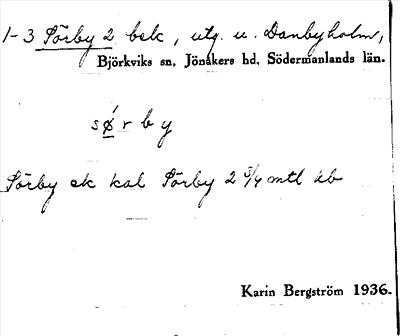 1-3 Sörby 2 bsk, utg. u. Danbyholm,
Björkviks sn, Jönåkers hd, Södermanlands län.
sø̀rby
Sörby ek kal Sörby 2 3/4 mtl Jb
Karin Bergström 1936.